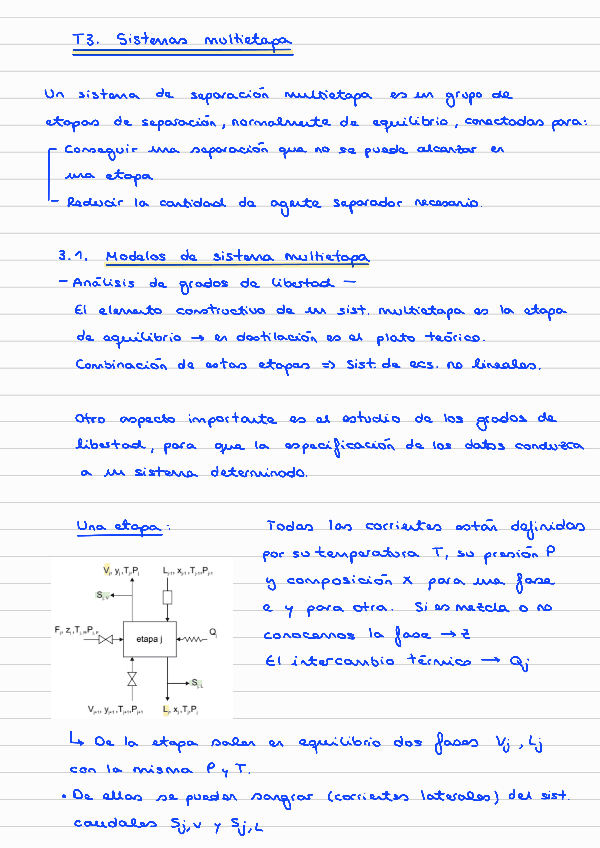 T3. Sistemas multietapa
Un sistema de separación multietapa es un grupo de
etapas de separación, normalmente de equilibrio, conectadas para:
- Conseguir una separación que no se puede alcanzar en
una etapa
- Reducir la cantidad de agente separador necesario.
3.1. Modelos de sistema multietapa
- Análisis de grados de libertad -
El elemento constructivo de un sist. multietapa es la etapa
de equilibrio → en destilación es el plato teórico.
Combinación de estas etapas => Sist. de ecs. no lineales.
Otro aspecto importante es el estudio de los grados de
libertad, para que la especificación de los datos conduzca
a un sistema determinado.
Una etapa:
Todas las corrientes están definidas
por su temperatura T, su presión P
y composición x para una fase
e y para otra. Si es mezcla o no
conocemos la fase → z
El intercambio térmico → Qj
Vj, yj, Tj, Pj
Lj-1, xj-1, Tj-1, Pj-1
Sj,V
Fj, zj, Tj,F, Pj,F
etapa j
Qj
Sj,L
Vj+1, yj+1, Tj+1, Pj+1
Lj, xj, Tj, Pj
↳ De la etapa salen en equilibrio dos fases Vj, Lj
con la misma P y T.
• De ellas se pueden sangrar (corrientes laterales) del sist.
caudales Sj,V y Sj,L